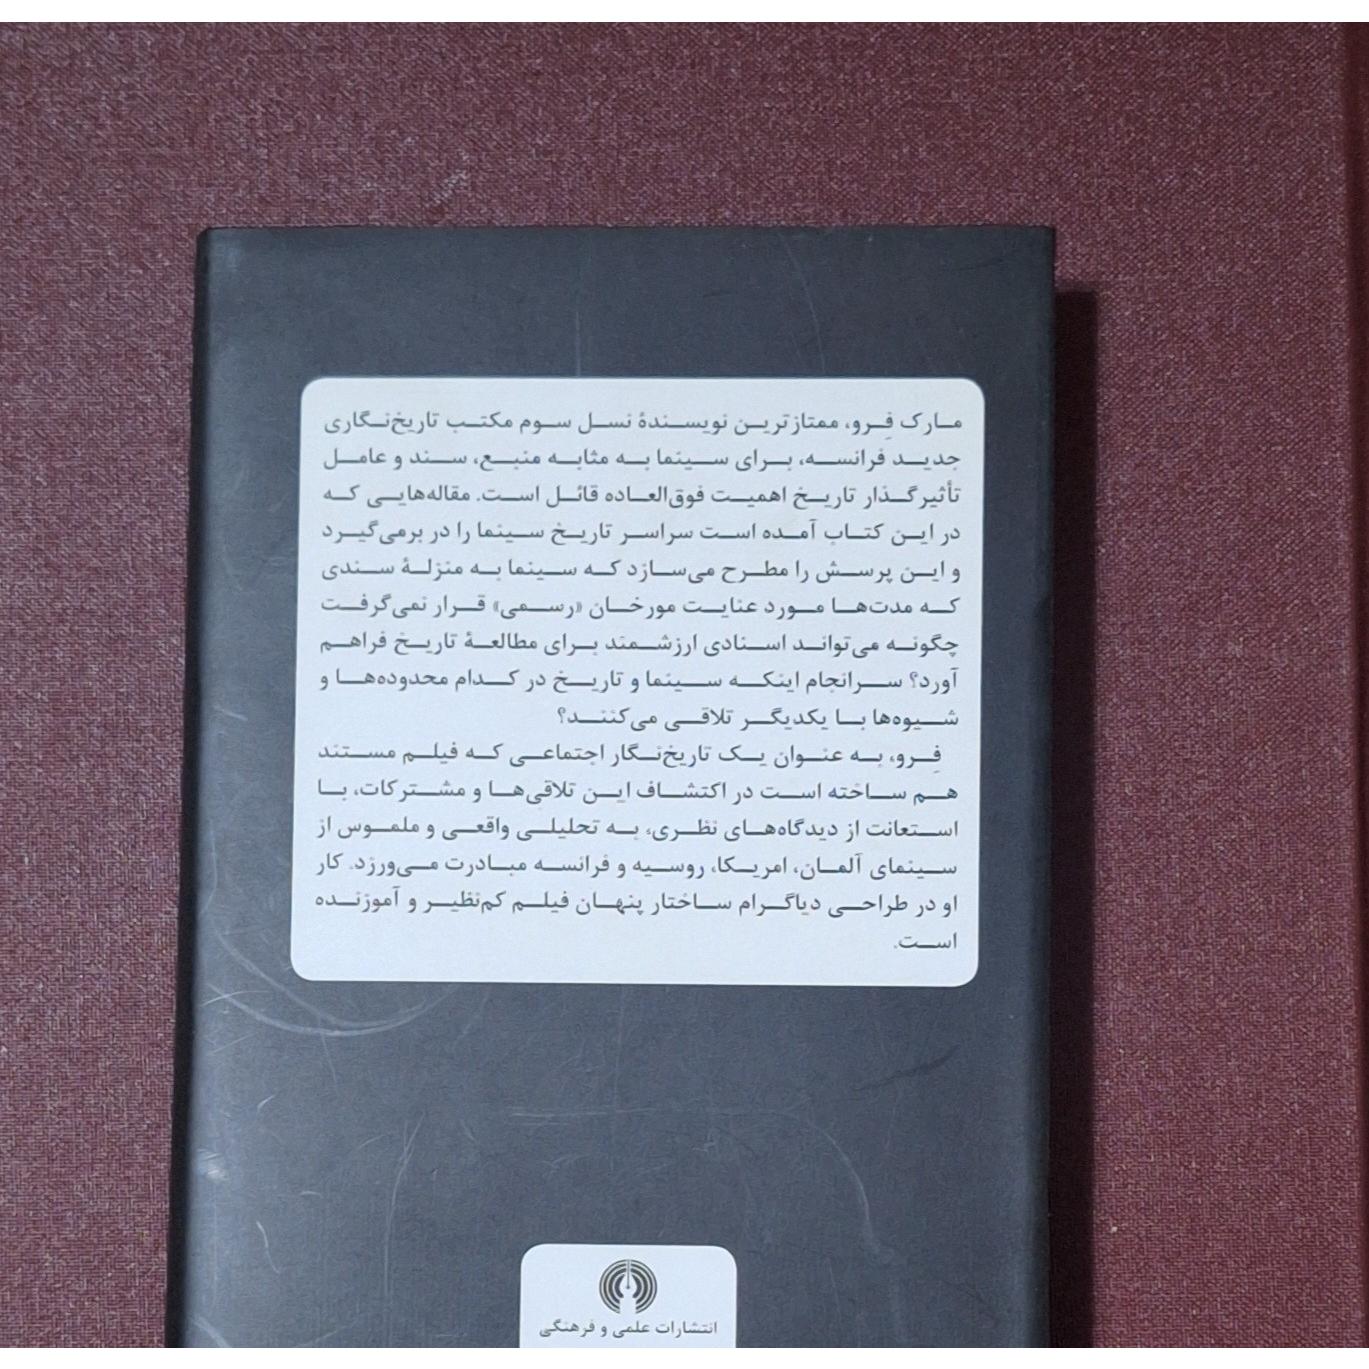 مارک فِرو، ممتازترین نویسندهٔ نسل سوم مکتب تاریخ‌نگاری
جدید فرانسه، برای سینما به مثابه منبع، سند و عامل
تأثیرگذار تاریخ اهمیت فوق‌العاده قائل است. مقاله‌هایی که
در این کتاب آمده است سراسر تاریخ سینما را در برمی‌گیرد
و این پرسش را مطرح می‌سازد که سینما به منزلهٔ سندی
که مدت‌ها مورد عنایت مورخان «رسمی» قرار نمی‌گرفت
چگونه می‌تواند اسنادی ارزشمند برای مطالعهٔ تاریخ فراهم
آورد؟ سرانجام اینکه سینما و تاریخ در کدام محدوده‌ها و
شیوه‌ها با یکدیگر تلاقی می‌کنند؟
فِرو، به عنوان یک تاریخ‌نگار اجتماعی که فیلم مستند
هم ساخته است در اکتشاف این تلاقی‌ها و مشترکات، با
استعانت از دیدگاه‌های نظری، به تحلیلی واقعی و ملموس از
سینمای آلمان، امریکا، روسیه و فرانسه مبادرت می‌ورزد. کار
او در طراحی دیاگرام ساختار پنهان فیلم کم‌نظیر و آموزنده
است.
انتشارات علمی و فرهنگی